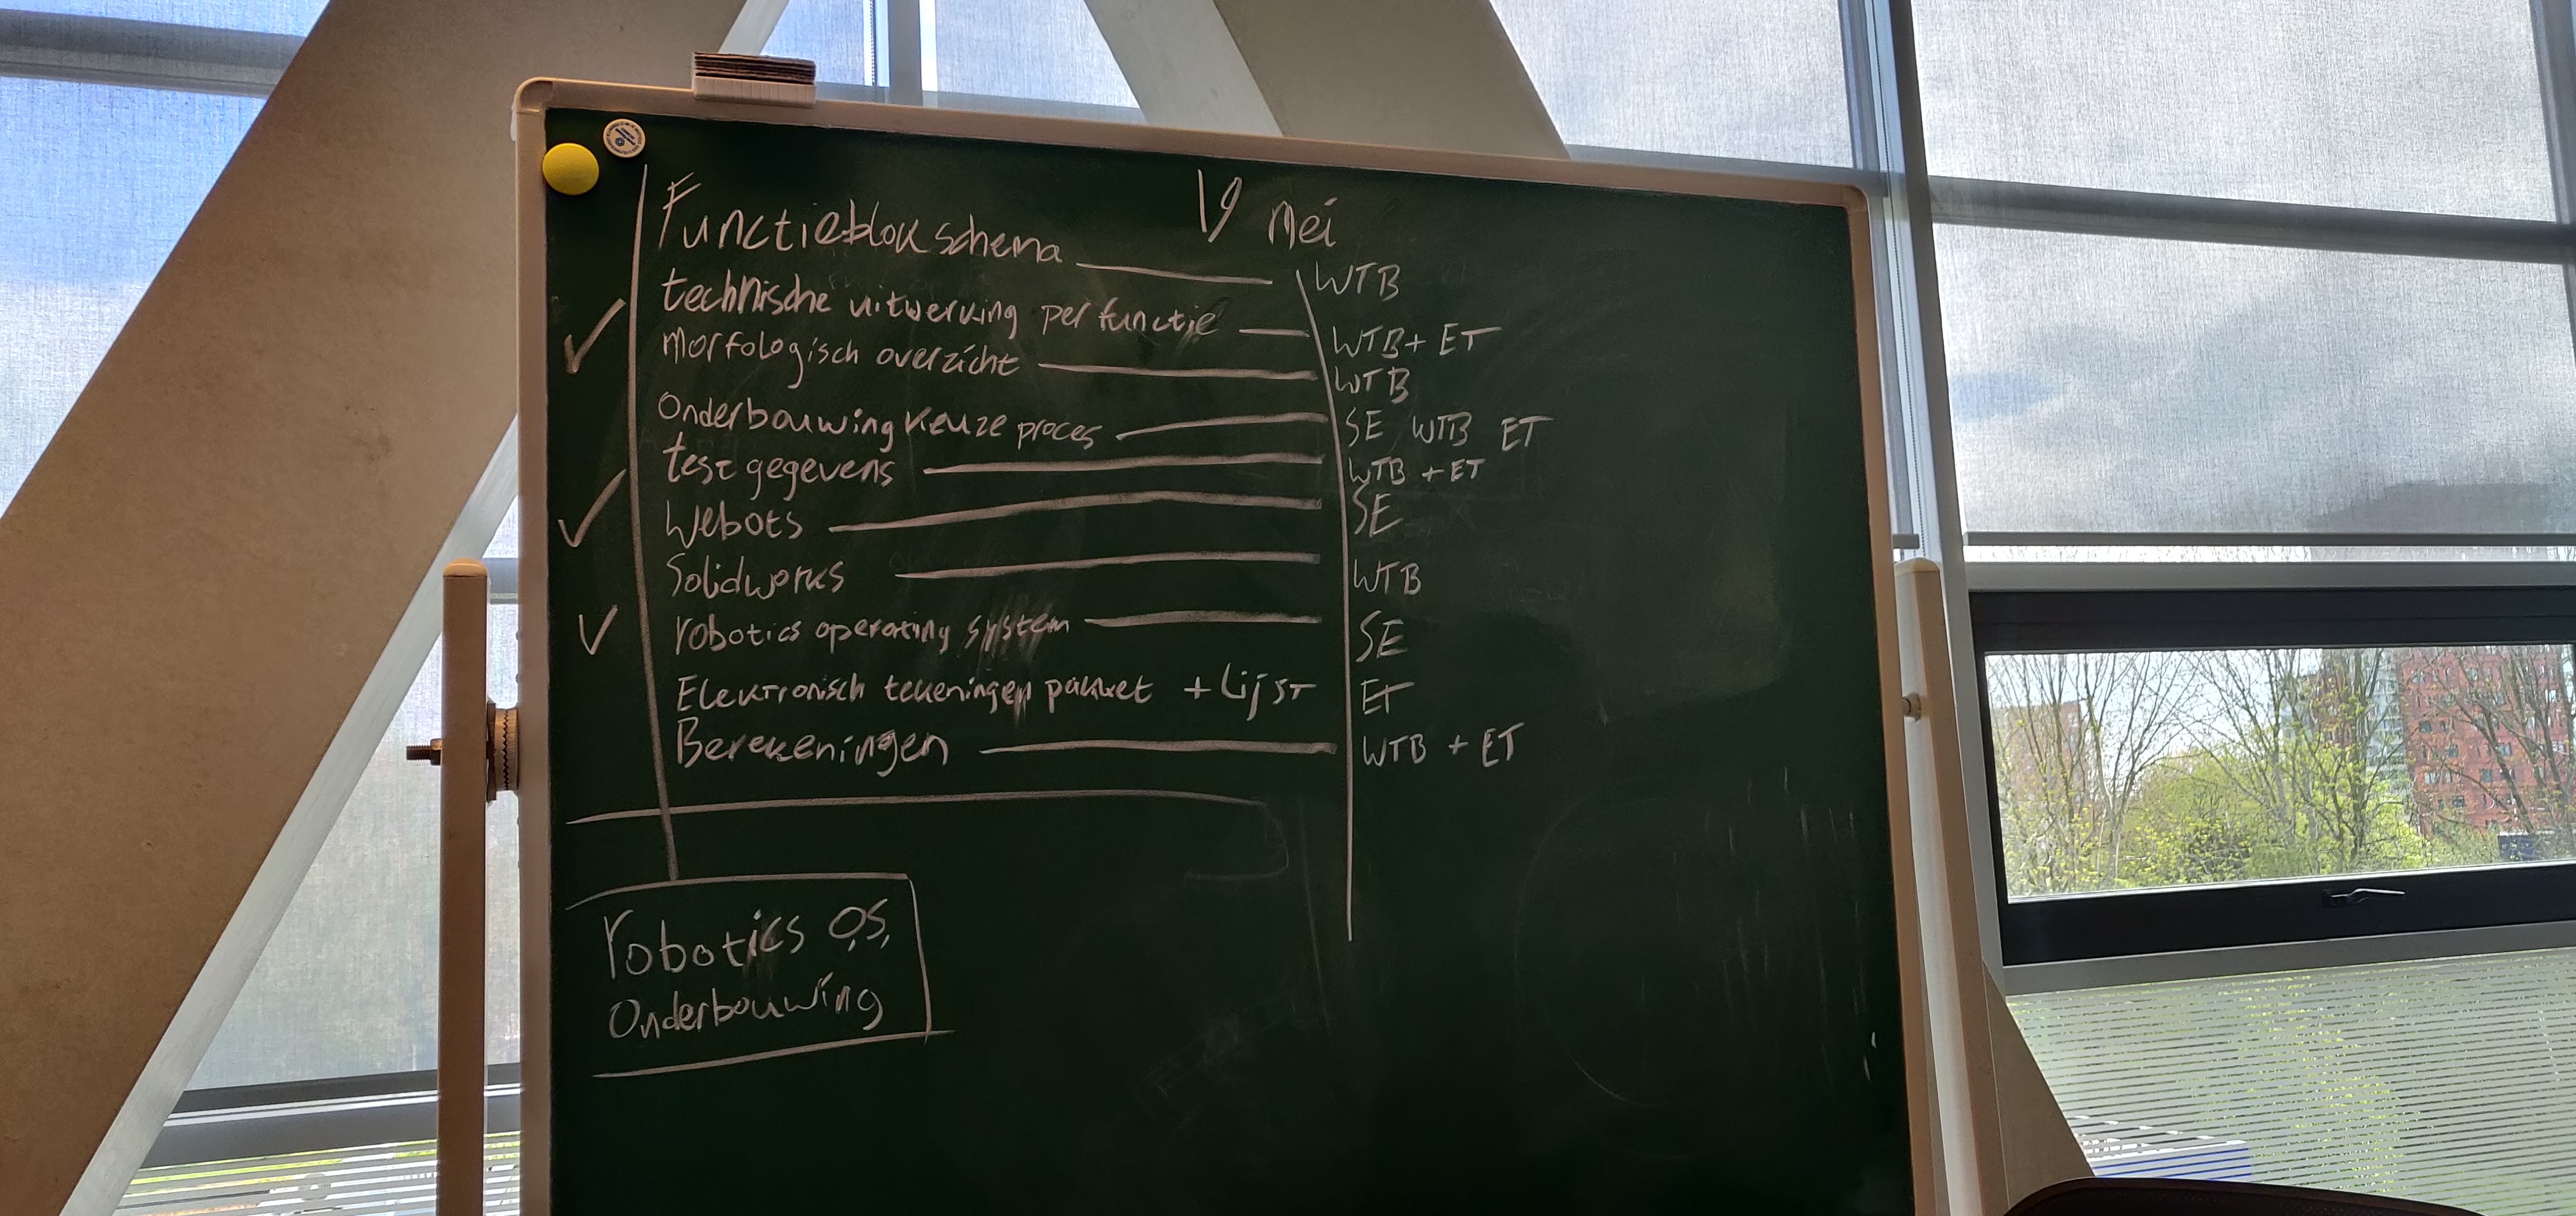 19 Mei
Functieblokschema WTB
technische uitwerking per functie WTB + ET
morfologisch overzicht WTB
Onderbouwing keuze proces SE WTB ET
test gegevens WTB + ET
Webots SE
Solidworks WTB
robotics operating system SE
Elektronisch tekeningen pakket + Lijst ET
Berekeningen WTB + ET
robotics O.S.
Onderbouwing